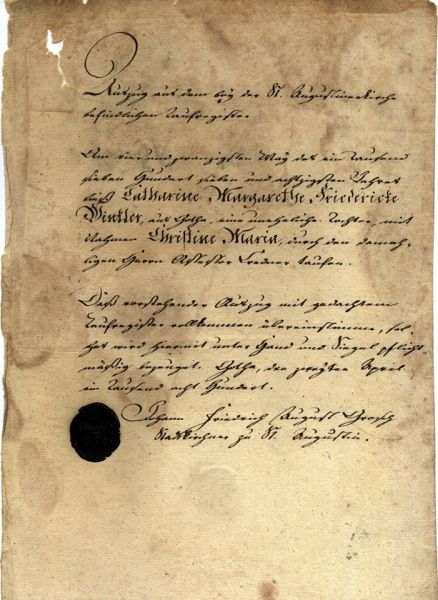 Auszug aus dem bey der St. Augustinerkirche
befindlichen Taufregister.
Am vier und zwanzigsten May des ein Tausend
sieben Hundert sieben und achtzigsten Jahres
ließ Catharine Margarethe Friedericke
Winkler, aus Gotha, eine uneheliche Tochter, mit
Nahmen Christine Maria, durch den damah-
ligen Herrn taufen.
Daß vorstehender Auszug mit gedachtem
Taufregister vollkommen übereinstimme, sol-
ches wird hiermit unter Hand und Siegel pflicht-
mäßig bezeuget. Gotha, den zweyten April
ein Tausend acht Hundert.
Johann Friedrich August Grosch
Stadtkirchner zu St. Augustin.